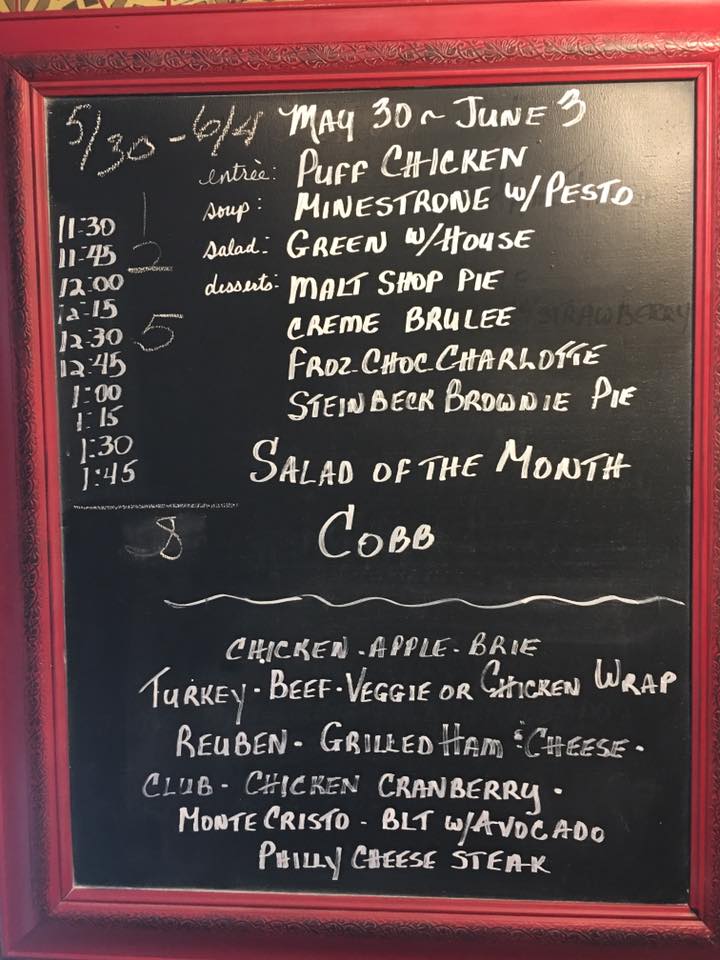 5/30 - 6/4
MAY 30 ~ JUNE 3
entrèe: PUFF CHICKEN
soup: MINESTRONE W/ PESTO
salad: GREEN W/HOUSE
desserts: MALT SHOP PIE
CREME BRULEE
FROZ. CHOC. CHARLOTTE
STEINBECK BROWNIE PIE
11:30 1
11:45 2
12:00
12:15
12:30 5
12:45
1:00
1:15
1:30
1:45
8
SALAD OF THE MONTH
COBB
CHICKEN - APPLE - BRIE
TURKEY - BEEF - VEGGIE OR CHICKEN WRAP
REUBEN - GRILLED HAM & CHEESE -
CLUB - CHICKEN CRANBERRY -
MONTE CRISTO - BLT W/AVOCADO
PHILLY CHEESE STEAK
STRAWBERRY